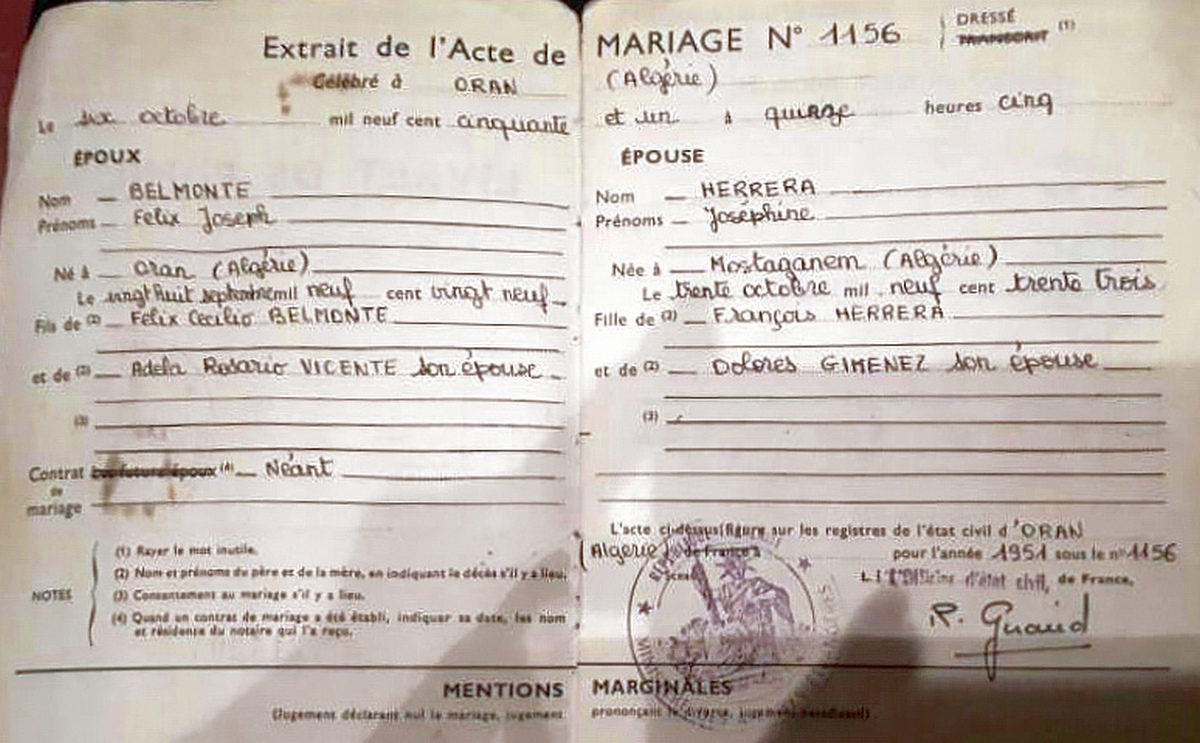 Extrait de l'Acte de MARIAGE N° 1156 DRESSÉ TRANSCRIT (1)
Célébré à ORAN (Algérie)
Le six octobre mil neuf cent cinquante et un à quinze heures cinq
ÉPOUX
Nom — BELMONTE
Prénoms — Felix Joseph
Né à — Oran (Algérie)
Le vingt huit septembre mil neuf cent vingt neuf
Fils de (2) — Félix Cecilio BELMONTE
et de (2) — Adela Rosario VICENTE son épouse
(3)
Contrat les futurs époux (4) — Néant
de
mariage
NOTES
(1) Rayer le mot inutile.
(2) Nom et prénoms du père et de la mère, en indiquant le décès s'il y a lieu.
(3) Consentement au mariage s'il y a lieu.
(4) Quand un contrat de mariage a été établi, indiquer sa date, les nom
et résidence du notaire qui l'a reçu.
ÉPOUSE
Nom — HERRERA
Prénoms — Joséphine
Née à — Mostaganem (Algérie)
Le trente octobre mil neuf cent trente trois
Fille de (2) — François HERRERA
et de (2) — Dolores GIMENEZ son épouse
(3)
L'acte ci-dessus figure sur les registres de l'état civil d'ORAN
(Algérie) de France à pour l'année 1951 sous le n° 1156
L'Officier d'état civil, de France,
MENTIONS MARGINALES
(Jugement déclarant nul le mariage, jugement prononçant le divorce,